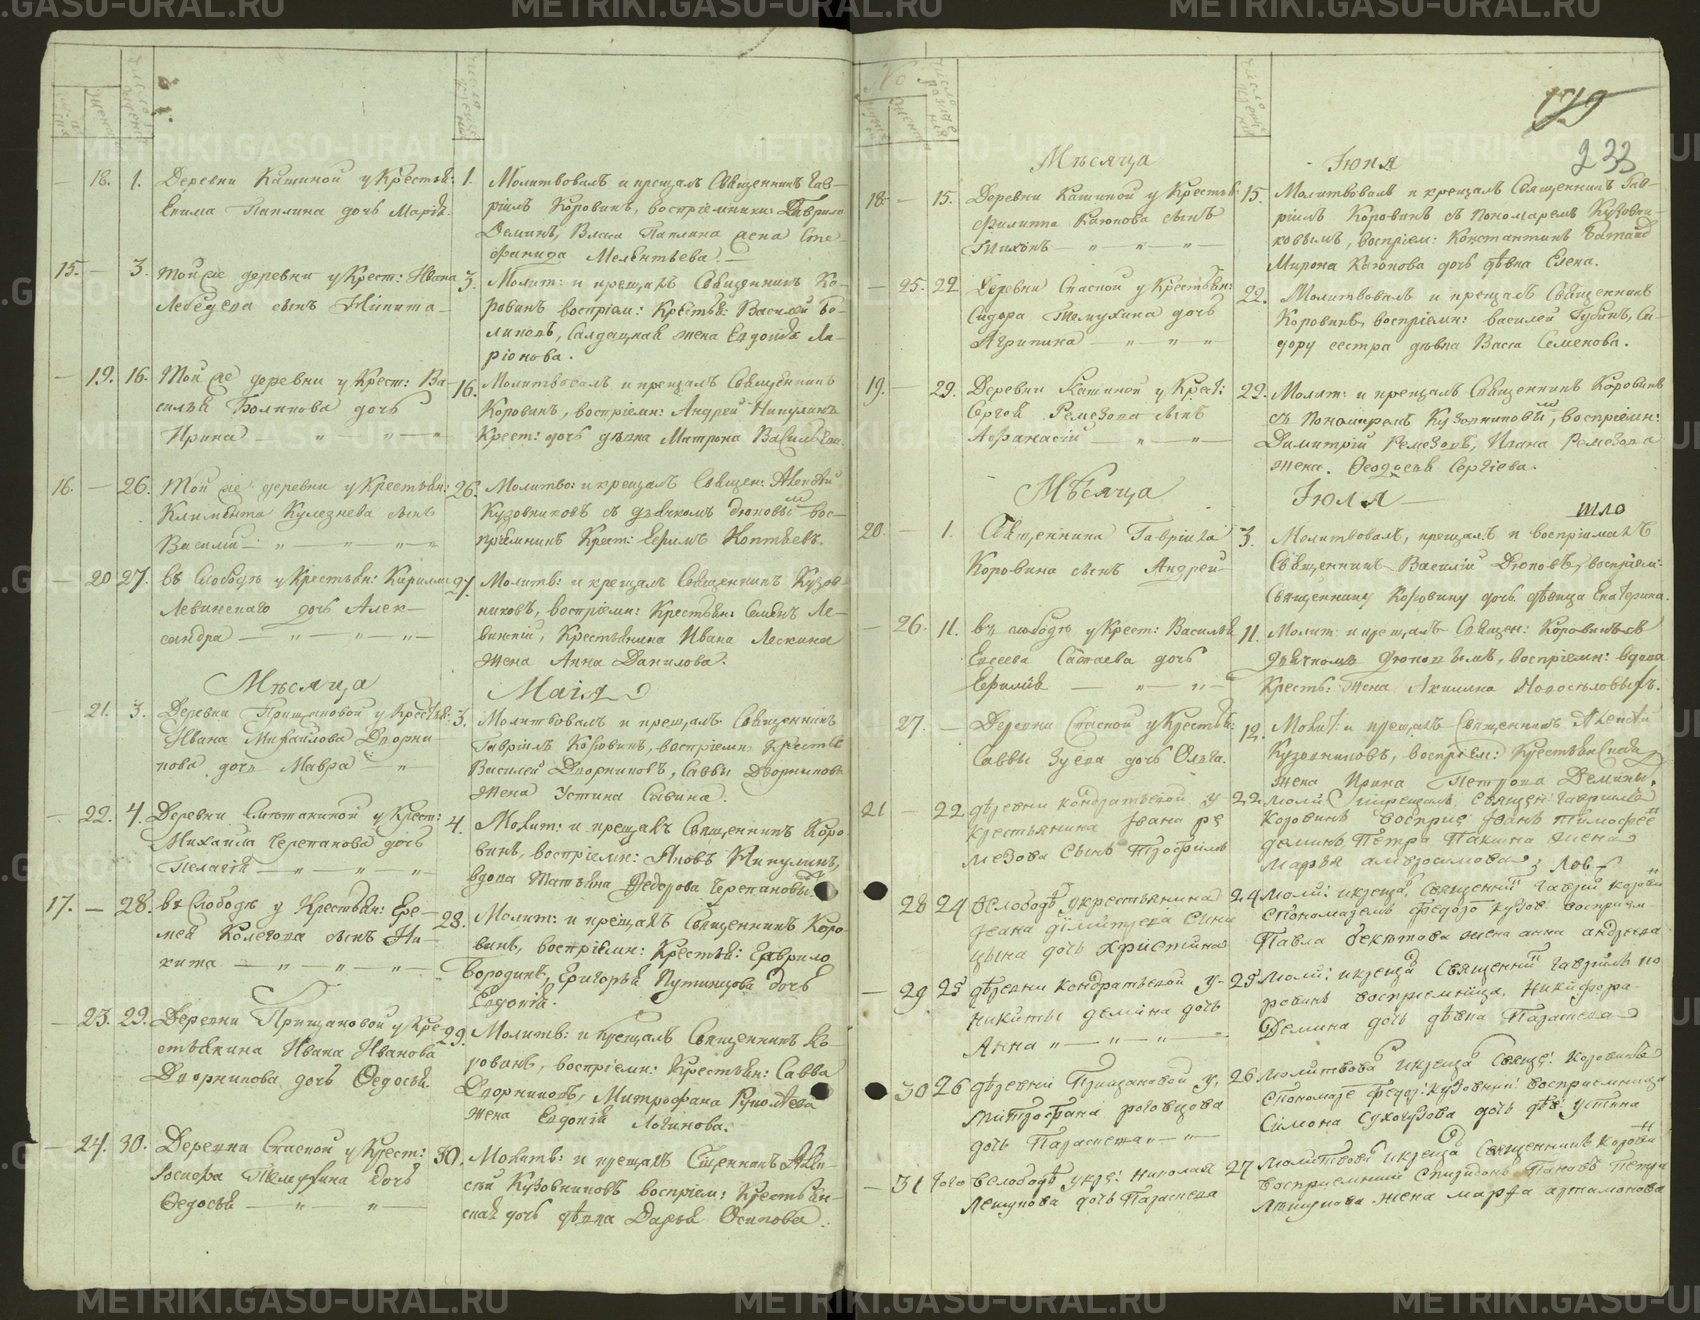 METRIKI.GASO-URAL.RU
18. 1. Деревни Кашиной у Крестьян:
Екима Паклина дочь Марія.
1. Молитвовалъ и крещалъ Священникъ Гав-
ріилъ Коровинъ, воспріемники: Гаврило
Деминъ, Власа Паклина жена Сте-
фанида Мелентьева.
15. — 3. Той же деревни у Крест: Ивана
Лебедева сынъ Никита
3. Молит: и крещалъ Священникъ Ко-
ровинъ воспріем: Крестья: Василей Бо-
ликовъ, Салдацкая жена Евдокія Ла-
ріонова.
19. 16. Той же деревни у Крест: Ва-
силья Боликова дочь
Ирина
16. Молитвовалъ и крещалъ Священникъ
Коровинъ, воспріемн: Андрей Никулинъ
Крест: дочь дѣвка Матрона Васильева.
16. — 26. Той же деревни у Крестьян:
Климента Кулезнева сынъ
Василій
26. Молитво: и крещалъ Священ: Алексѣй
Кузовниковъ съ дьячкомъ Дюковым вос-
пріемникъ Крест: Ефимъ Коптяевъ.
20 27. въ Слободѣ у Крестьян: Кирилы
Левинскаго дочь Алек-
сандра
27. Молитв: и крещалъ Священникъ Кузов-
никовъ, воспріемн: Крестьян: Семенъ Ле-
винскій, Крестьянина Ивана Лескина
жена Анна Данилова.
Мѣсяца Маія
21. 3. Деревни Прищановой у Крестья:
Ивана Михайлова Дворни-
кова дочь Мавра
3. Молитвовалъ и крещалъ Священникъ
Гавріилъ Коровинъ, воспріемн: Крестья
Василей Дворниковъ, Саввы Дворникова
жена Устина Савина.
22. 4. Деревни у Крест:
Михаила Черепанова дочь
Пелагія
4. Молит: и крещалъ Священникъ Коро
винъ, воспріемн: Яковъ Никулинъ,
вдова Татьяна Федорова Черепановых
17. — 28. въ Слободѣ у Крестьян: Ере-
мея Колегова сынъ Ни-
кита
28. Молит: и крещалъ Священникъ Коро
винъ, воспріемн: Крестья: Гаврило
Бородинъ, Григорья Путинцова дочь
Евдокія.
23. 29. Деревни Прищановой у Кре
стьянина Ивана Иванова
Дворникова дочь Ѳедосья
29. Молитв: и крещалъ Священникъ Ко
ровинъ, воспріемн: Крестьян: Савва
Дворниковъ, Митрофана
жена Евдокія Логинова.
24. 30. Деревни Спасской у Крест:
Іосифа дочь
Ѳедосья
30. Молитв: и крещалъ Священникъ Алек-
сѣй Кузовниковъ воспріем: Крестьян-
ская дочь дѣвка Дарья Осипова.
179
233
Мѣсяца Іюня
18. — 15. Деревни Кашиной у Крестья:
Филиппа Каюкова сынъ
Тихонъ
15. Молитвовалъ и крещалъ Священникъ Гав-
ріилъ Коровинъ съ пономаремъ Кузовни-
ковымъ, воспріем: Константинъ
Мирона Каюкова дочь дѣвка Елена.
25. 22 Деревни Спаской у Крестьян:
Сидора дочь
Агрипина
22. Молитвовалъ и крещалъ Священникъ
Коровинъ, воспріемн: Василей Губинъ, Си-
дору сестра дѣвка Васса Семенова.
19. — 29. Деревни Кашиной у Крест:
Сергея Ремезова сынъ
Афанасій
29. Молит: и крещалъ Священникъ Коровинъ
съ Пономаремъ Кузовниковым, воспріемн:
Димитрій Ремезовъ, Ивана Ремезова
жена. Ѳеодосья Сергіева.
Мѣсяца Іюля
20. 1. Священника Гавріила
Коровина сынъ Андрей
3. Молитвовалъ, крещалъ и воспріималъ
Священникъ Василій Дюковъ, воспріем:
Священнику Коровину дочь дѣвица Екатерина.
26. 11. въ слободѣ у Крест: Василья
Елисеева дочь
Ефимія
11. Молит: и крещалъ Священ: Коровинъ съ
дьячкомъ Дюковымъ, воспріемн: вдова
Кресть: жена Акилина Новоселовыхъ.
27. — Деревни Спаской у Крестья:
Саввы Зуева дочь Ольга.
12. Молит: и крещалъ Священникъ Алексѣй
Кузовниковъ, воспріем: Крестьян
жена Ирина Петрова Демины.
21 — 22 деревни Кондратьевой у
Крестьянина Івана ре
мезова Сынъ Трофимъ
22. моли: икрещалъ Священ: Гаврилъ
Коровинъ восприе: Іванъ тимофее
деминъ Петра Пакина жена
Марья амвросимова
28 24 вСлободѣ укрестьянина
Івана Дімитрева Сини
цына дочь Христина
24 моли: икреща: Священни Гаврил Корови
спономаремъ Федоро кузов восприем
Павла бекетова жена анна андреева
29 25 деревни Кондратьевой у
Никиты демина дочь
Анна
25 моли: икреща Священни Гаврилъ ко
ровинъ восприемница. Никифора
Демина дочь дѣвка Параскева
30 26 деревни Прищановой у
Митрофана роговцова
дочь Параскева
26 молитвова икреща Свяще: Коровинъ
спономаре федор: кузовник: восприемница
Симона Сухогузова дочь дѣв: устина
31 того вСлободѣ укре: Николая
Лешукова дочь Параскева
27 молитвова икреща Священникъ Корови
восприемники Спиридонъ Пановъ Петра
Лешукова жена марфа артамонова